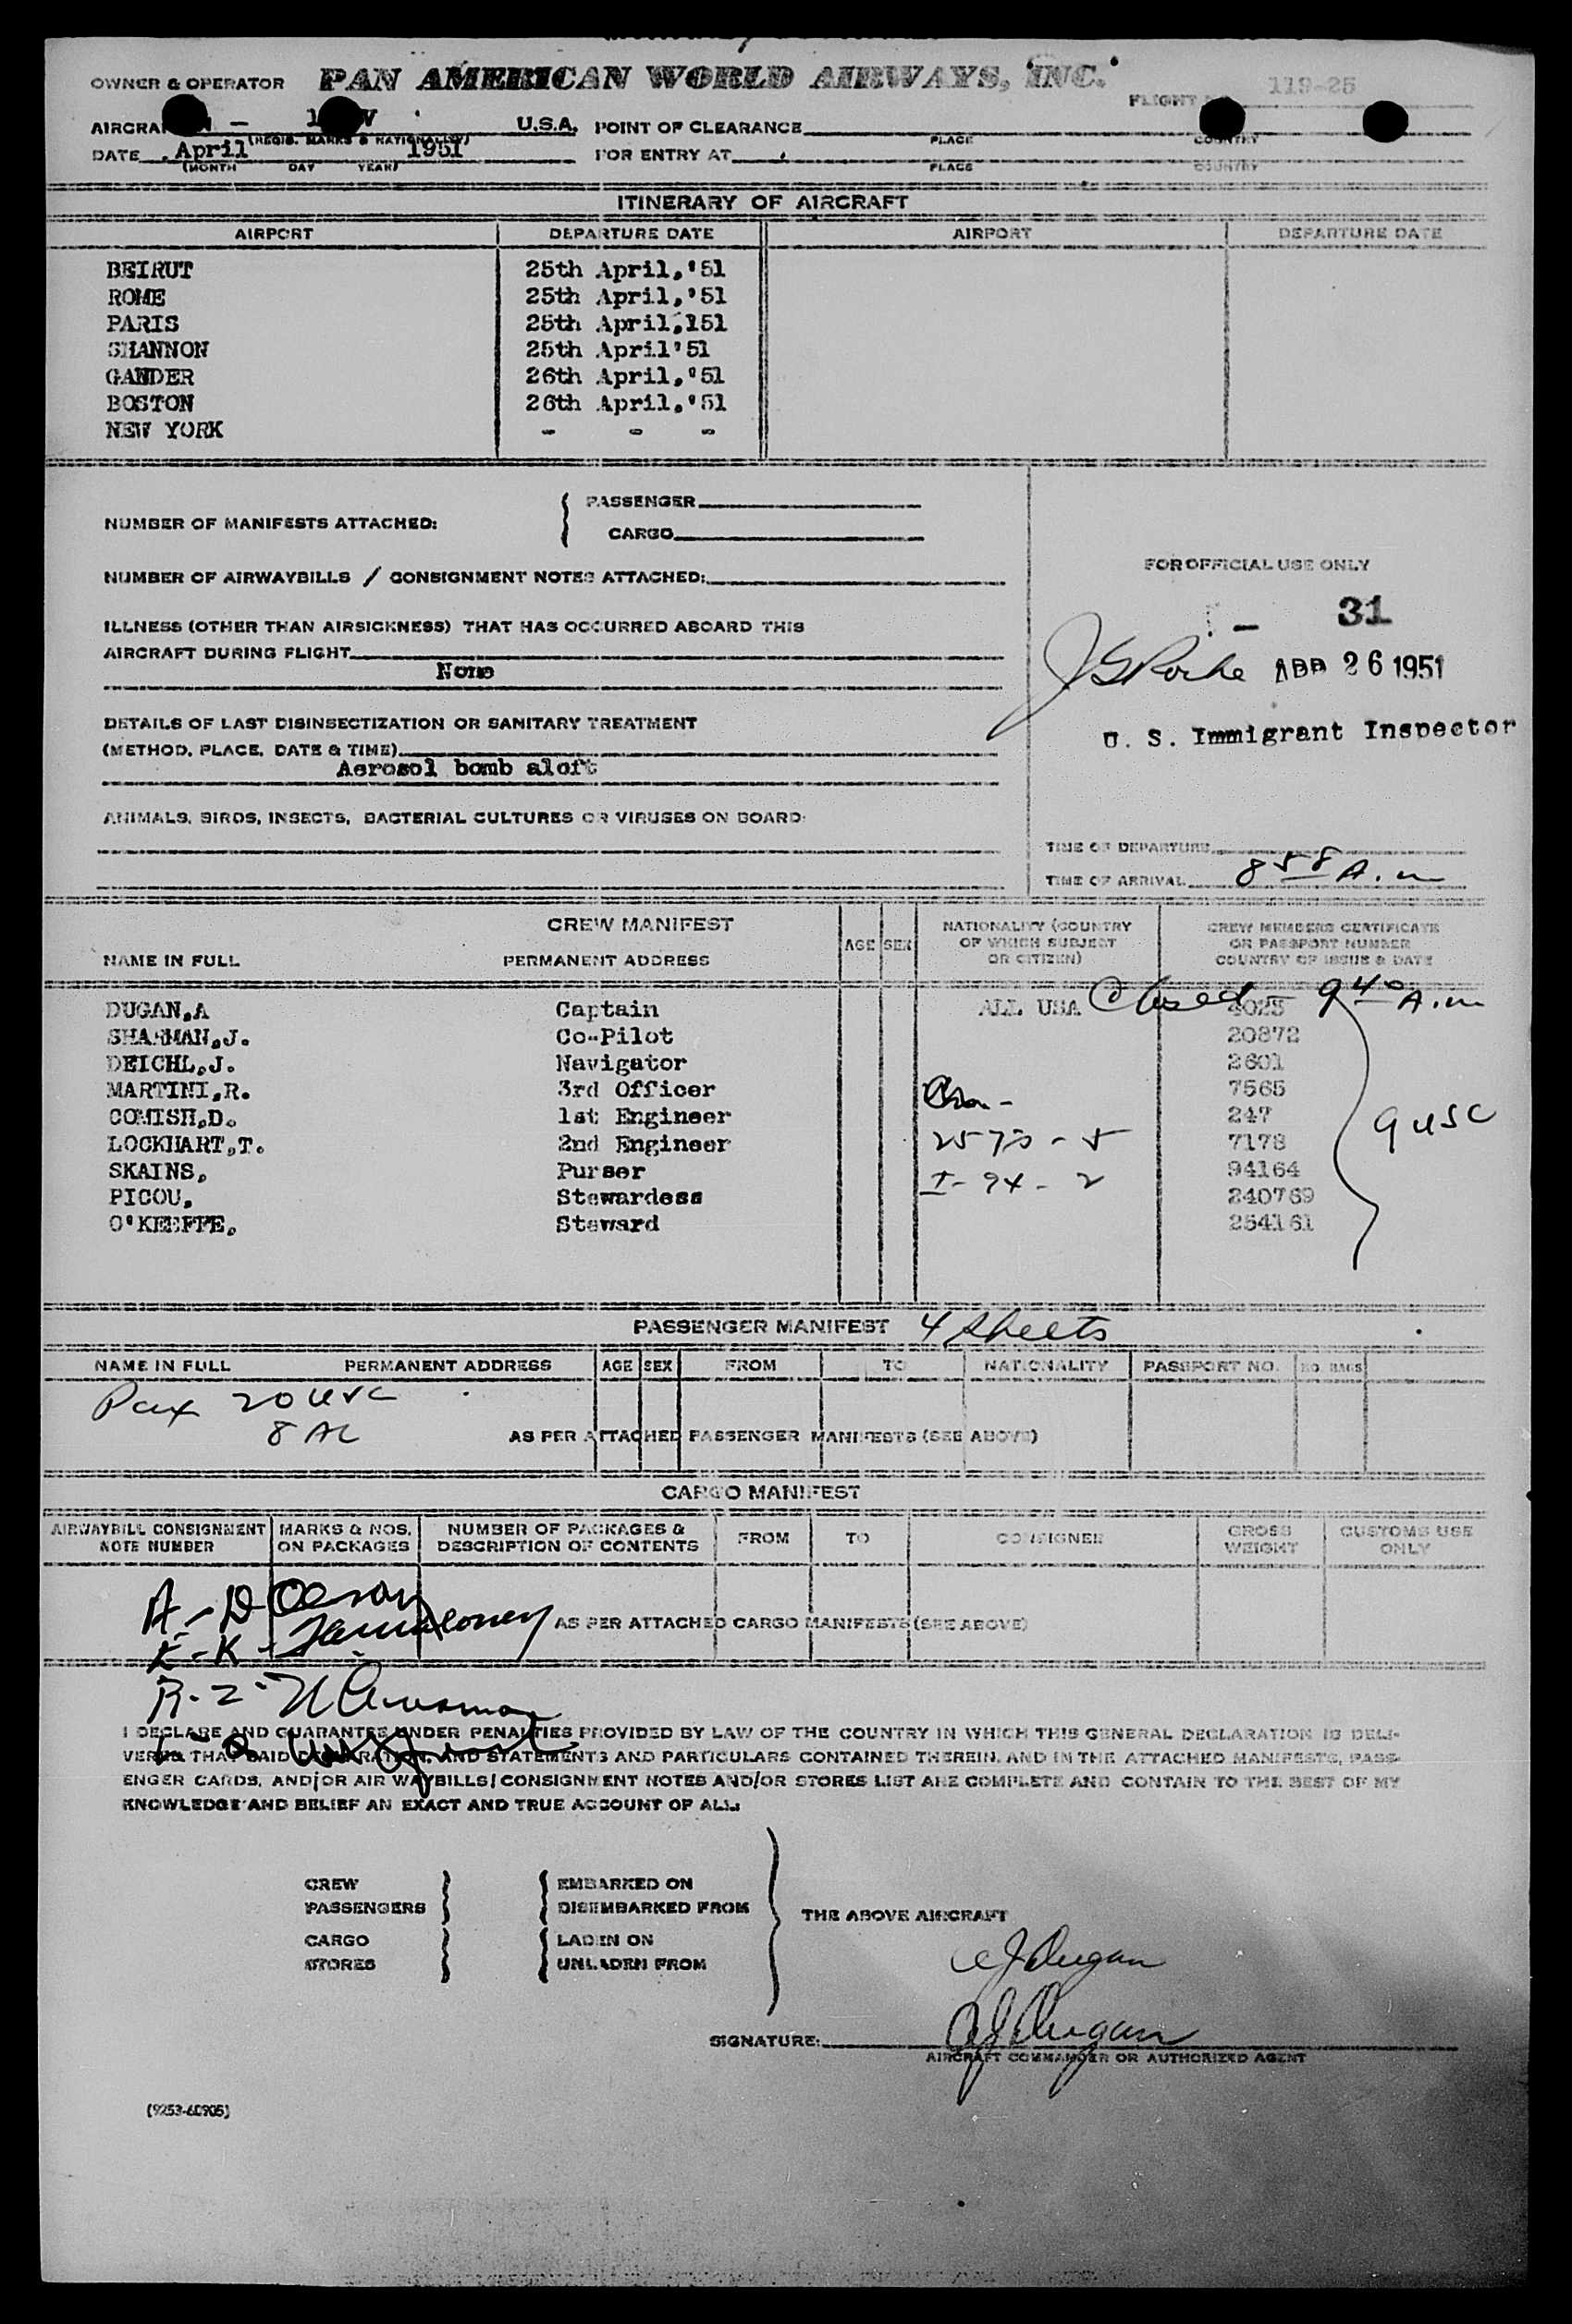 OWNER & OPERATOR PAN AMERICAN WORLD AIRWAYS, INC.
FLIGHT 119-25
U.S.A. POINT OF CLEARANCE
(REGIS. MARKS & NATIONALITY) PLACE COUNTRY
DATE April 1951 FOR ENTRY AT
(MONTH DAY YEAR) PLACE COUNTRY
ITINERARY OF AIRCRAFT
AIRPORT DEPARTURE DATE AIRPORT DEPARTURE DATE
BEIRUT 25th April,'51
ROME 25th April,'51
PARIS 25th April,151
SHANNON 25th April'51
GANDER 26th April,'51
BOSTON 26th April,'51
NEW YORK - - -
NUMBER OF MANIFESTS ATTACHED: PASSENGER
CARGO
NUMBER OF AIRWAYBILLS / CONSIGNMENT NOTES ATTACHED:
ILLNESS (OTHER THAN AIRSICKNESS) THAT HAS OCCURRED ABOARD THIS
AIRCRAFT DURING FLIGHT
None
DETAILS OF LAST DISINSECTIZATION OR SANITARY TREATMENT
(METHOD, PLACE, DATE & TIME)
Aerosol bomb aloft
ANIMALS, BIRDS, INSECTS, BACTERIAL CULTURES OR VIRUSES ON BOARD:
FOR OFFICIAL USE ONLY
- 31
APR 26 1951
U. S. Immigrant Inspector
TIME OF DEPARTURE
TIME OF ARRIVAL 858 A.m
CREW MANIFEST
NAME IN FULL PERMANENT ADDRESS AGE SEX NATIONALITY (COUNTRY OF WHICH SUBJECT OR CITIZEN) CREW MEMBERS CERTIFICATE OR PASSPORT NUMBER COUNTRY OF ISSUE & DATE
Closed - 940 A.m
DUGAN,A Captain ALL USA 4025
SHARMAN,J. Co-Pilot 20872
DEICHL,J. Navigator 2601
MARTINI,R. 3rd Officer 7565
COMISH,D. 1st Engineer 247
LOCKHART,T. 2nd Engineer 7178
SKAINS, Purser I-94-2 94164
PICOU, Stewardess 240769
O'KEEFFE, Steward 254161
9 USC
PASSENGER MANIFEST 4 sheets
NAME IN FULL PERMANENT ADDRESS AGE SEX FROM TO NATIONALITY PASSPORT NO. NO. BAGS
Pax 20 USC
8 AL
AS PER ATTACHED PASSENGER MANIFESTS (SEE ABOVE)
CARGO MANIFEST
AIRWAYBILL CONSIGNMENT NOTE NUMBER MARKS & NOS. ON PACKAGES NUMBER OF PACKAGES & DESCRIPTION OF CONTENTS FROM TO CONSIGNEE GROSS WEIGHT CUSTOMS USE ONLY
A - D
E - K
AS PER ATTACHED CARGO MANIFESTS (SEE ABOVE)
R - Z
I DECLARE AND GUARANTEE UNDER PENALTIES PROVIDED BY LAW OF THE COUNTRY IN WHICH THIS GENERAL DECLARATION IS DELI-
VERED THAT SAID DECLARATION, AND STATEMENTS AND PARTICULARS CONTAINED THEREIN, AND IN THE ATTACHED MANIFESTS, PASS-
ENGER CARDS, AND/OR AIR WAYBILLS/CONSIGNMENT NOTES AND/OR STORES LIST ARE COMPLETE AND CONTAIN TO THE BEST OF MY
KNOWLEDGE AND BELIEF AN EXACT AND TRUE ACCOUNT OF ALL:
CREW EMBARKED ON
PASSENGERS DISEMBARKED FROM
THE ABOVE AIRCRAFT
CARGO LADEN ON
STORES UNLADEN FROM
A J Dugan
SIGNATURE: A J Dugan
AIRCRAFT COMMANDER OR AUTHORIZED AGENT
(9253-60905)